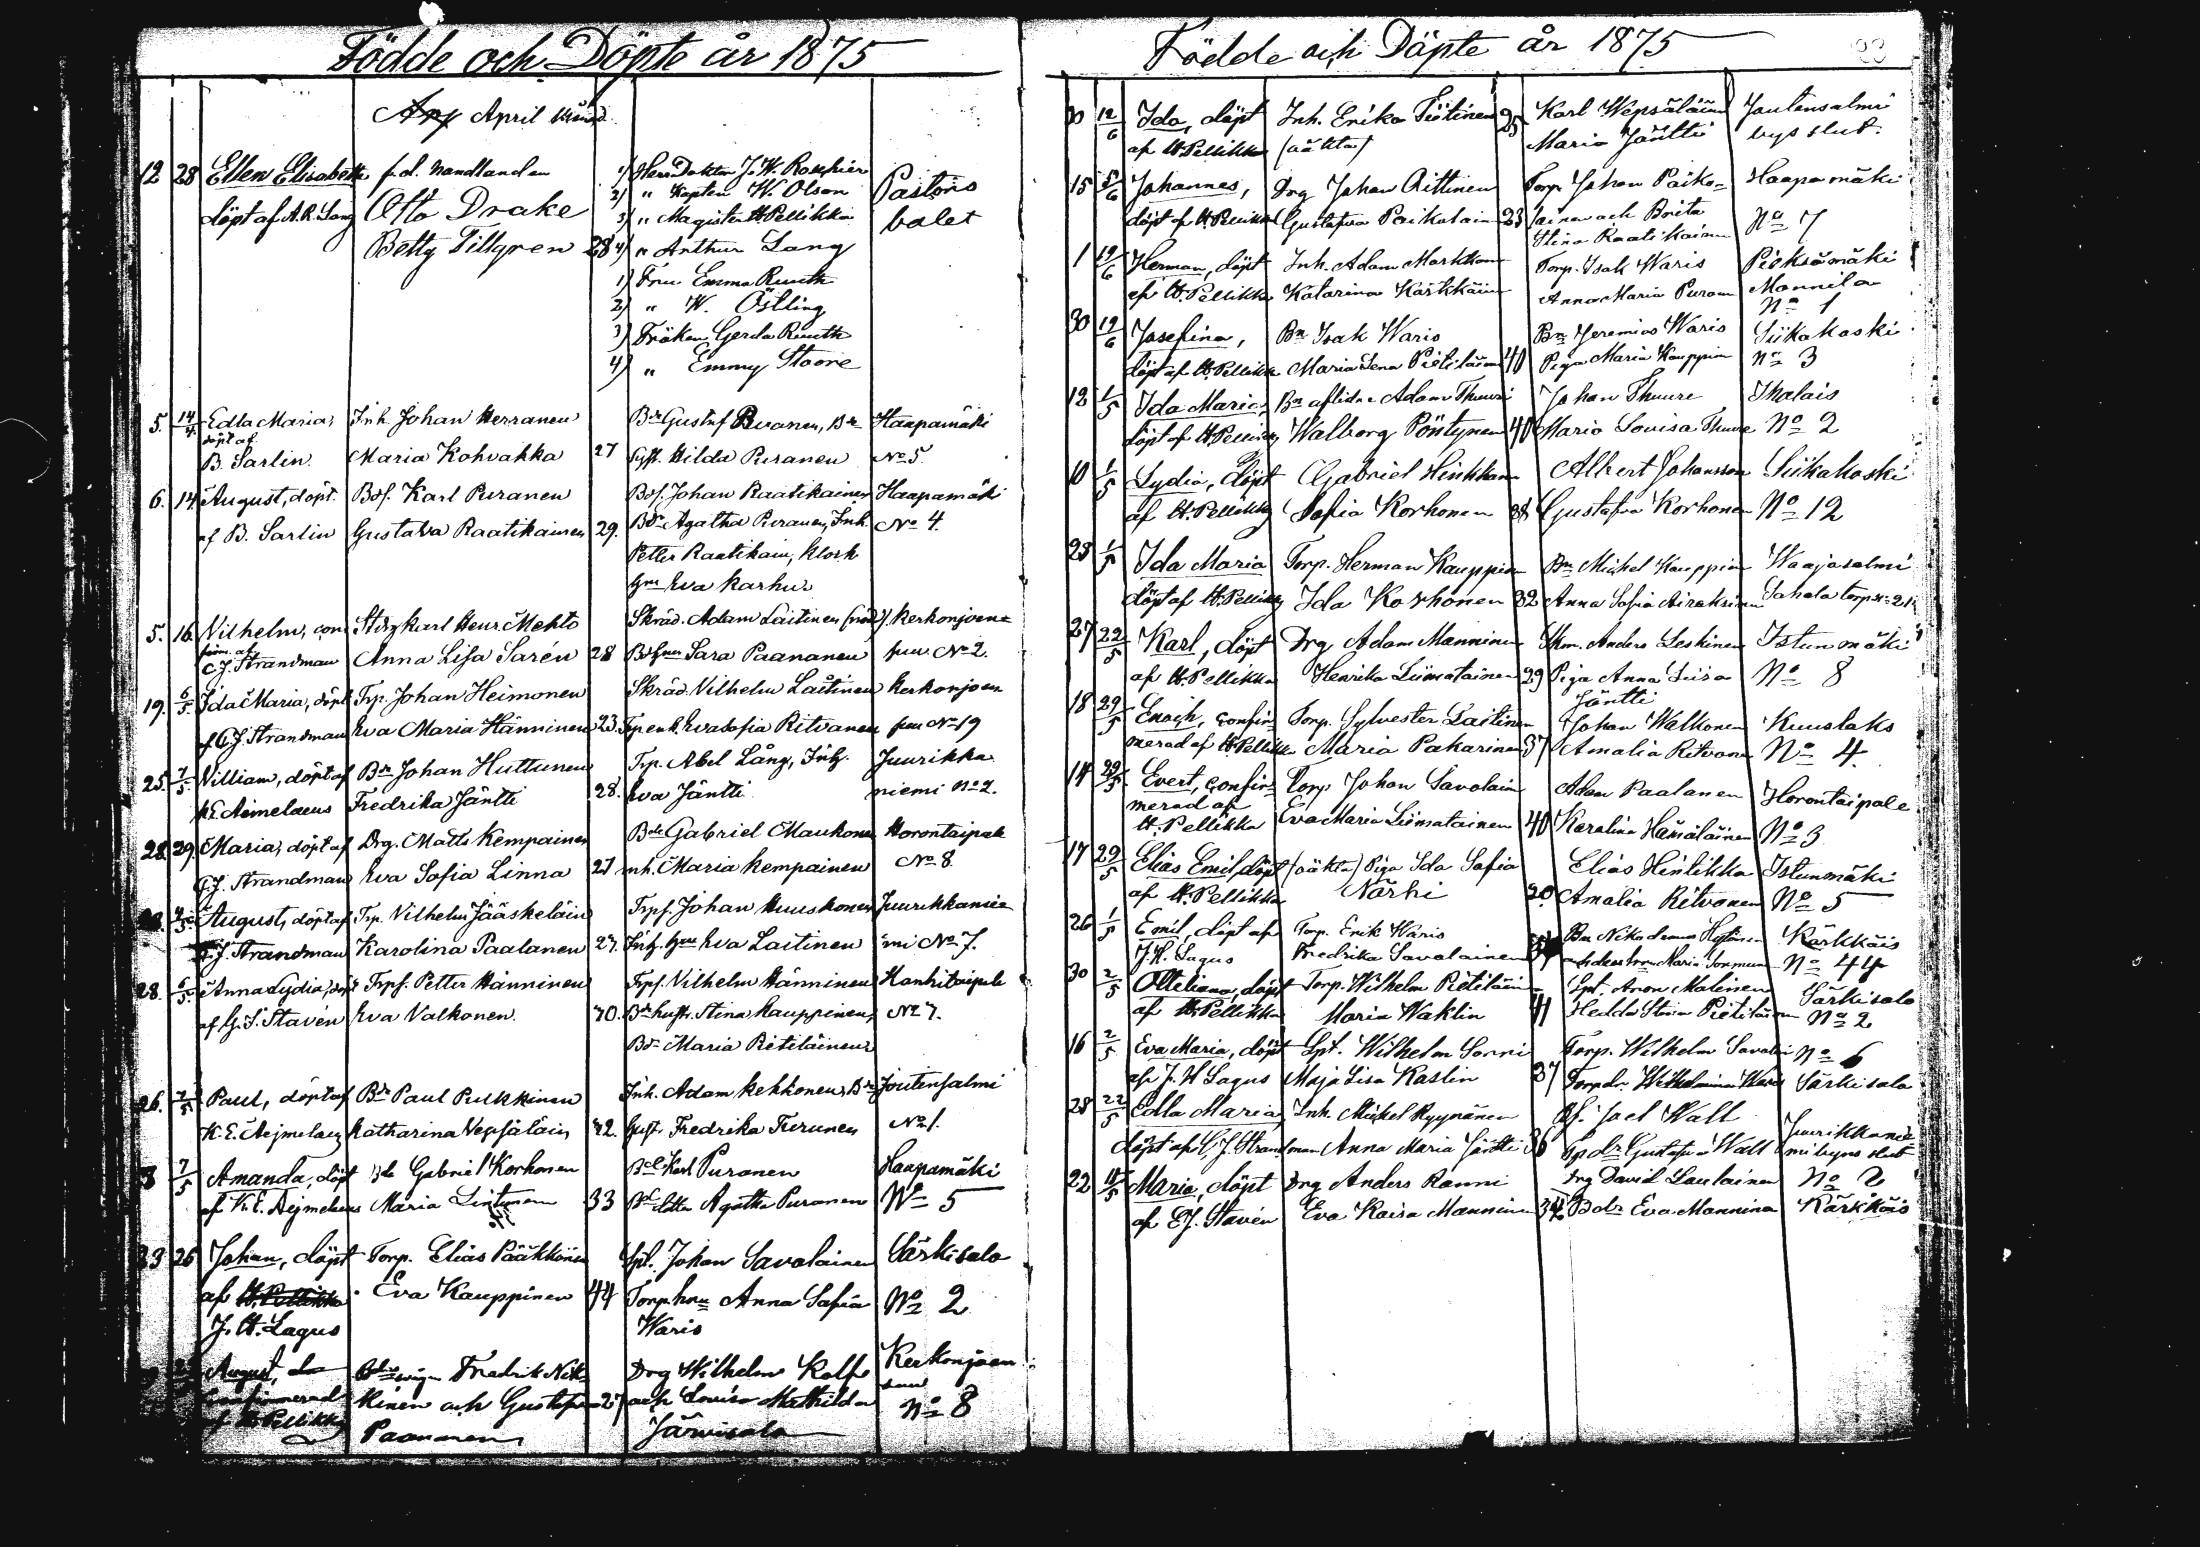 Födde och Döpte år 1875
April
12 28 Ellen Elisabeth f.d. handlanden 1) Herr Doktor J. W.
döpt af A. R. Lang Otto Drake 2) " Kapten W. Olson Pastors
Betty Tillgren 28 3) " Magister H. Pellikka bolet
4) " Arthur Lang
1) Fru Emma Reuth
2) " W. Östling
3) Fröken Gerda Reuth
4) " Emmy Stoore
5. 14/4 Edla Maria, Inh. Johan Herranen Bdr Gustaf Puranen, Haapamäki
döpt af
B. Sarlin. Maria Kohvakka 27 Hilda Puranen No 5.
6. 14 August, döpt. Bds. Karl Puranen Bds. Johan Raatikainen Haapamäki
af B. Sarlin Gustava Raatikainen 29. Agatha Puranen, Inh. No 4.
Petter Raatikain, Klosk
Eva Karhu
5. 16 Vilhelm, con Karl Henr. Mehto Skräd. Adam Laitinen Kerkonjoen=
firm. af
C. J. Strandman Anna Lisa Sarén 28 Sara Paananen suu No 2.
19. 6/5. Ida Maria, döpt Trp. Johan Heimonen Skräd. Vilhelm Laitinen Kerkonjoen
af C. J. Strandman Eva Maria Hänninen 23. Eva Sofia Ritvanen suu No 19
25. 7/5 William, döpt af Bdr Johan Huttunen Trp. Abel Lång, Juurikka
K. E. Aejmelaeus Fredrika Jäntti 28. Eva Jäntti niemi No 2.
28. 29. Maria, döpt af Drg. Matts Kempainen Gabriel Maukonen Horontaipale
C. J. Strandman Eva Sofia Linna 27 Inh. Maria Kempainen No 8
August, döpt af Trp. Vilhelm Jääskeläin Trps. Johan Huuskonen Juurikkanie=
C. J. Strandman Karolina Paalanen 27. Eva Laitinen mi No 7.
28. 6/5. Anna Lydia, döpt Trps. Petter Hänninen Trps. Vilhelm Hänninen Hankitaipale
af G. S. Stavén Eva Valkonen. 40. Stina Kauppinen, No 7.
Maria Pietiläinen
26. 7/5 Paul, döpt af Bdr Paul Pukkinen Inh. Adam Kekkonen, Joutensalmi
K. E. Aejmelaeus Katharina Vepsäläin 42. Fredrika Turunen No 1.
7/5 Amanda, döpt Gabriel Korhonen Karl Puranen Haapamäki
af K. E. Aejmelaeus Maria 33 Agatha Puranen No 5
26 Johan, döpt Torp. Elias Pääkkönen Spt. Johan Savolainen Särkisalo
af H. Pellikka Eva Kauppinen 44 Torp. hru Anna Sofia No 2
J. H. Lagus Waris
August, Fredrik Nik Drg Wilhelm Rolf Kerkonjoen
confirmerad kinen och Gustafva 27 och Lovisa Mathilda suu
af H. Pellikka Paananen Järvisalo No 8
Födde och Döpte år 1875
30 12/6 Ida, döpt Inh. Erika Tiitinen 25 Karl Wepsäläinen Joutensalmi
af H. Pellikka (oäkta) Maria Jäntti bys slut.
15 5/6 Johannes, Drg Johan Rittinen Torp. Johan Paiko= Haapamäki
döpt af H. Pellikka Gustafva Paikolain 23 lainen och Brita No 7
Stina Raatikainen
1 19/6 Herman, döpt Inh. Adam Markkan Torp. Isak Waris Pieksämäki
af H. Pellikka Katarina Kärkkäin Anna Maria Puran Mannila
No 1
30 19/6 Josefina, Bn Isak Waris Bn Jeremias Waris Siikakoski
döpt af H. Pellikka Maria Lena Pietiläinen 40 Piga Maria Kauppin No 3
12 1/5 Ida Maria, Bn aflidne Adam Thuuri Johan Thuure Ihalais
döpt af H. Pellikka Walborg Pöntynen 40 Maria Lovisa Thuure No 2
10 1/5 Lydia, döpt Gabriel Hinkkanen Albert Johansson Siikakoski
af H. Pellikka Sofia Korhonen Gustafva Korhonen No 12
28 1/5 Ida Maria Torp. Herman Kauppin Bn Mickel Kauppin Waajasalmi
döpt af H. Pellikka Ida Korhonen 32 Anna Sofia Airaksinen Sahala torp
27 22/5 Karl, döpt Drg Adam Manninen Anders Leskinen Istunmäki
af H. Pellikka Henrika Liimatainen 29 Piga Anna Liisa No 8
Jäntti
18 29/5 Enoch, confir= Torp. Sylvester Laitinen Johan Walkonen Kuuslaks
merad af H. Pellikka Maria Pakarinen 37 Amalia Ritvanen No 4.
14 29/5. Evert, confir= Torp. Johan Savolain Adam Paalanen Horontaipale
merad af
H. Pellikka Eva Maria Liimatainen 40 Karolina Hämäläinen No 3
17 29/5 Elias Emil, döpt (oäkta) Piga Ida Sofia Elias Hintikka Istunmäki
af H. Pellikka Närhi 20. Amalia Ritvanen No 5
26 1/5 Emil, döpt af Torp. Erik Waris Bn Nikodemus Kärkkäis
J. H. Lagus Fredrika Savolainen Maria No 44
30 2/5 Ottiliana, döpt Torp. Wilhelm Pietiläinen Spt. Aron Malinen Särkisalo
af H. Pellikka Maria Waklin 41 Hedda Stina Pietiläinen No 2
16 2/5 Eva Maria, döpt Spt. Wilhelm Sorri Torp. Wilhelm Savolain No 6
af J. H Lagus Maja Lisa Kaslin 37 Torpdr. Wilhelmina Waris Särkisalo
28 22/5 Edla Maria, Inh. Mickel Ryynänen Joel Wall Juurikkanie
döpt af C. J. Strandman Anna Maria Jäntti 36 Gustafva Wall mi byns slut
22 Maria, döpt Drg Anders Ranni Drg David Laulainen No 2
af E. J. Stavén Eva Kaisa Manninen 34 Bdr Eva Manninen Kärkkäis